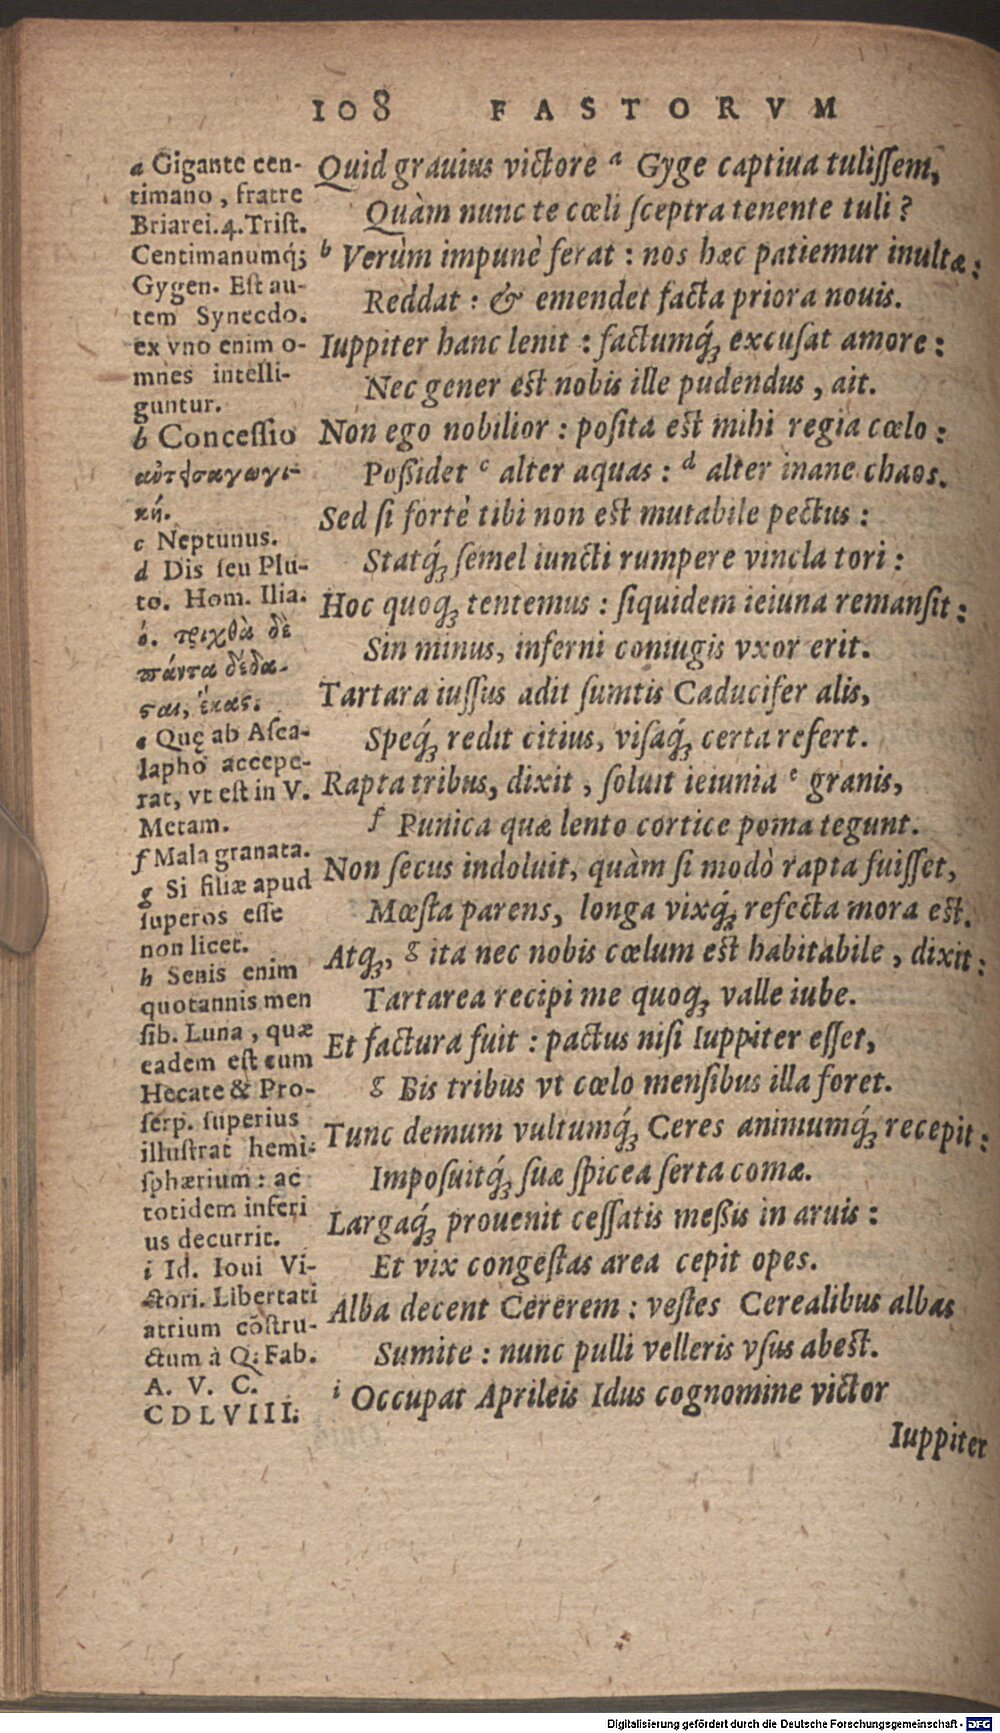 108 FASTORVM
a Gigante cen-
timano, fratre
Briarei. 4. Trist.
Centimanumq́;
Gygen. Est au-
tem Synecdo.
ex vno enim o-
mnes intelli-
guntur.
b Concessio
κή.
c Neptunus.
d Dis seu Plu-
to. Hom. Ilia.
ό. τριχθὰ δὲ
πάντα δέδα-
ςαι, ἕκας.
e Quę ab Asca-
lapho accepe-
rat, vt est in V.
Metam.
f Mala granata.
g Si filiæ apud
superos esse
non licet.
h Senis enim
quotannis men
sib. Luna, quæ
eadem est cum
Hecate & Pro-
serp. superius
illustrat hemi-
sphærium: ac
totidem inferi
us decurrit.
i Id. Ioui Vi-
ctori. Libertati
atrium cōstru-
ctum à Q. Fab.
A. V. C.
CDLVIII.
Quid grauius victore a Gyge captiua tulissem,
Quàm nunc te cœli sceptra tenente tuli?
b Verùm impunè ferat: nos hæc patiemur inultæ:
Reddat: & emendet facta priora nouis.
Iuppiter hanc lenit: factumq́ꝫ excusat amore:
Nec gener est nobis ille pudendus, ait.
Non ego nobilior: posita est mihi regia cœlo:
Possidet c alter aquas: d alter inane chaos.
Sed si fortè tibi non est mutabile pectus:
Statq́ꝫ semel iuncti rumpere vincla tori:
Hoc quoqꝫ tentemus: siquidem ieiuna remansit:
Sin minus, inferni coniugis vxor erit.
Tartara iussus adit sumtis Caducifer alis,
Speq́ꝫ redit citius, visaq́ꝫ certa refert.
Rapta tribus, dixit, soluit ieiunia e granis,
f Punica quæ lento cortice poma tegunt.
Non secus indoluit, quàm si modò rapta fuisset,
Mœsta parens, longa vixq́ꝫ refecta mora est.
Atqꝫ, g ita nec nobis cœlum est habitabile, dixit:
Tartarea recipi me quoqꝫ valle iube.
Et factura fuit: pactus nisi Iuppiter esset,
g Bis tribus vt cœlo mensibus illa foret.
Tunc demum vultumq́ꝫ Ceres animumq́ꝫ recepit:
Imposuitq́ꝫ suæ spicea serta comæ.
Largaq́ꝫ prouenit cessatis messis in aruis:
Et vix congestas area cepit opes.
Alba decent Cererem: vestes Cerealibus albas
Sumite: nunc pulli velleris vsus abest.
i Occupat Aprileis Idus cognomine victor
Iuppiter
Digitalisierung gefördert durch die Deutsche Forschungsgemeinschaft - DFG